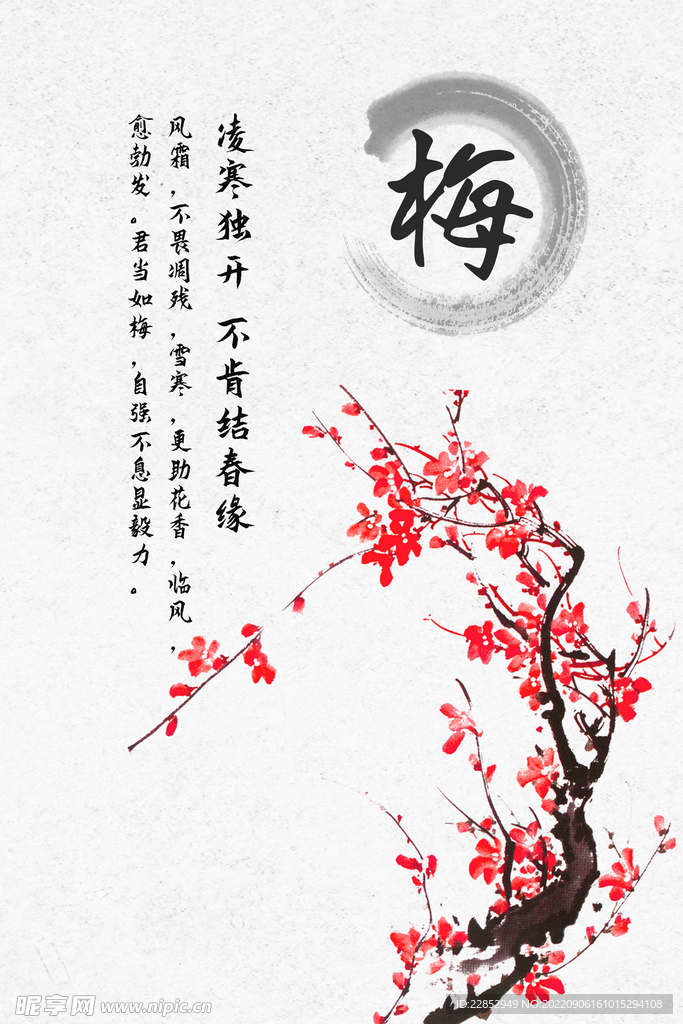 梅
凌寒独开 不肯结春缘
风霜，不畏凋残，雪寒，更助花香，临风，
愈勃发。君当如梅，自强不息显毅力。
昵享网 www.nipic.cn
ID:22852949 NO:20220906161015294108